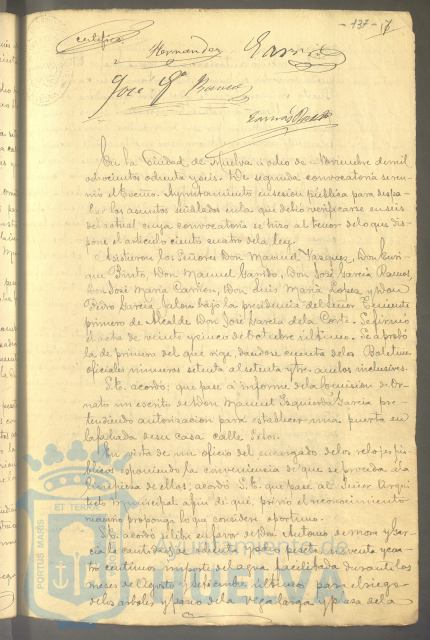 - 137 - 7
certifico
Hernandez Garcia
José
En la Ciudad de Huelva á ocho de Noviembre de mil
ochocientos ochenta y seis. De segunda convocatoria se reu-
nió el Excmo. Ayuntamiento en sesion pública para despa-
char los asuntos señalados en la que debió verificarse en seis
del actual cuya convocatoria se hizo al tenor de lo que dis-
pone el artículo ciento cuatro de la ley.
Asistieron los Señores Don Manuel Vazquez, Don Enri-
que Pinto, Don Manuel Garrido, Don José Garcia Ramos,
Don José Maria Carrion, Don Luis Maria Lopez y Don
Pedro Garcia Jalon bajo la presidencia del Señor Teniente
primero de Alcalde Don José Garcia de la Corte. Se firmó
el acta de veinte y cinco de Octubre último. Se aprobó
la de primero del que rige, dandose cuenta de los Boletines
oficiales números setenta al setenta y tres ambos inclusives.
S.E. acordó: que pase á informe de la Comision de Or-
nato un escrito de Don Manuel Izquierdo Garcia pre-
tendiendo autorizacion para establecer una puerta en
la fachada de su casa calle
En vista de un oficio del encargado de los relojes pú-
blicos esponiendo la conveniencia de que se proceda á la
limpieza de ellos; acordó S.E. que pase al Señor Arqui-
tecto Municipal á fin de que, prévio el reconocimiento
necesario proponga lo que considere oportuno.
Se acordó librar en favor de Don Antonio de Mora y Gar-
cia la cantidad de ochenta y ocho pesetas cuarenta y cua-
tro céntimos importe del agua facilitada durante los
meses de Agosto y Septiembre últimos para el riego
de los árboles y paseo de la Vega larga y plaza de la
PORTUS MARIS ET TERRAE
Ayuntamiento de
HUELVA